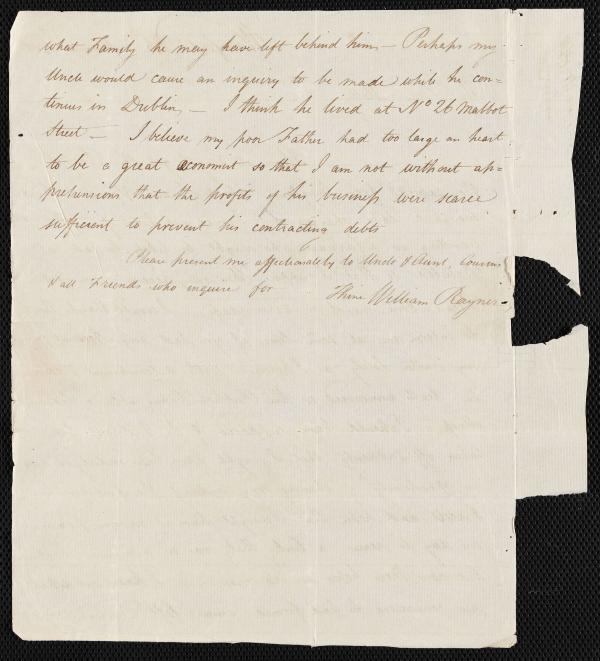 what Family he may have left behind him — Perhaps my
Uncle would cause an inquiry to be made while he con=
tinues in Dublin, — I think he lived at No 26 Mabbot
Street — I believe my poor Father had too large an heart
to be a great œconomist so that I am not without ap=
prehensions that the profits of his business were scarce
sufficient to prevent his contracting debts
Please present me affectionately to Uncle & Aunt, Cousins
& all Friends who inquire for Thine William Rayner